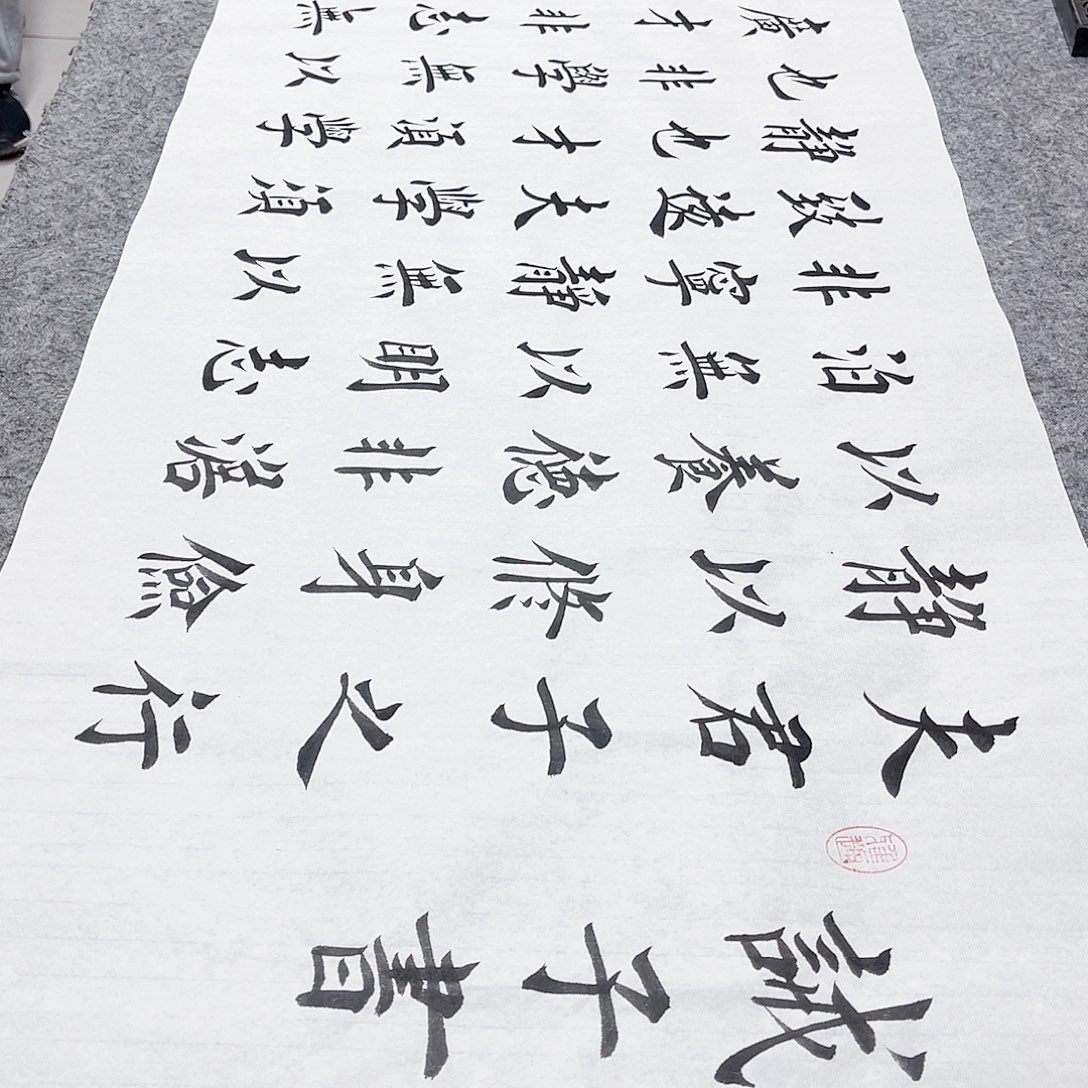 誡子書
夫君子之行
靜以修身儉
以養德非澹
泊無以明志
非寧靜無以
致遠夫學須
靜也才須學
也非學無以
廣才非志無